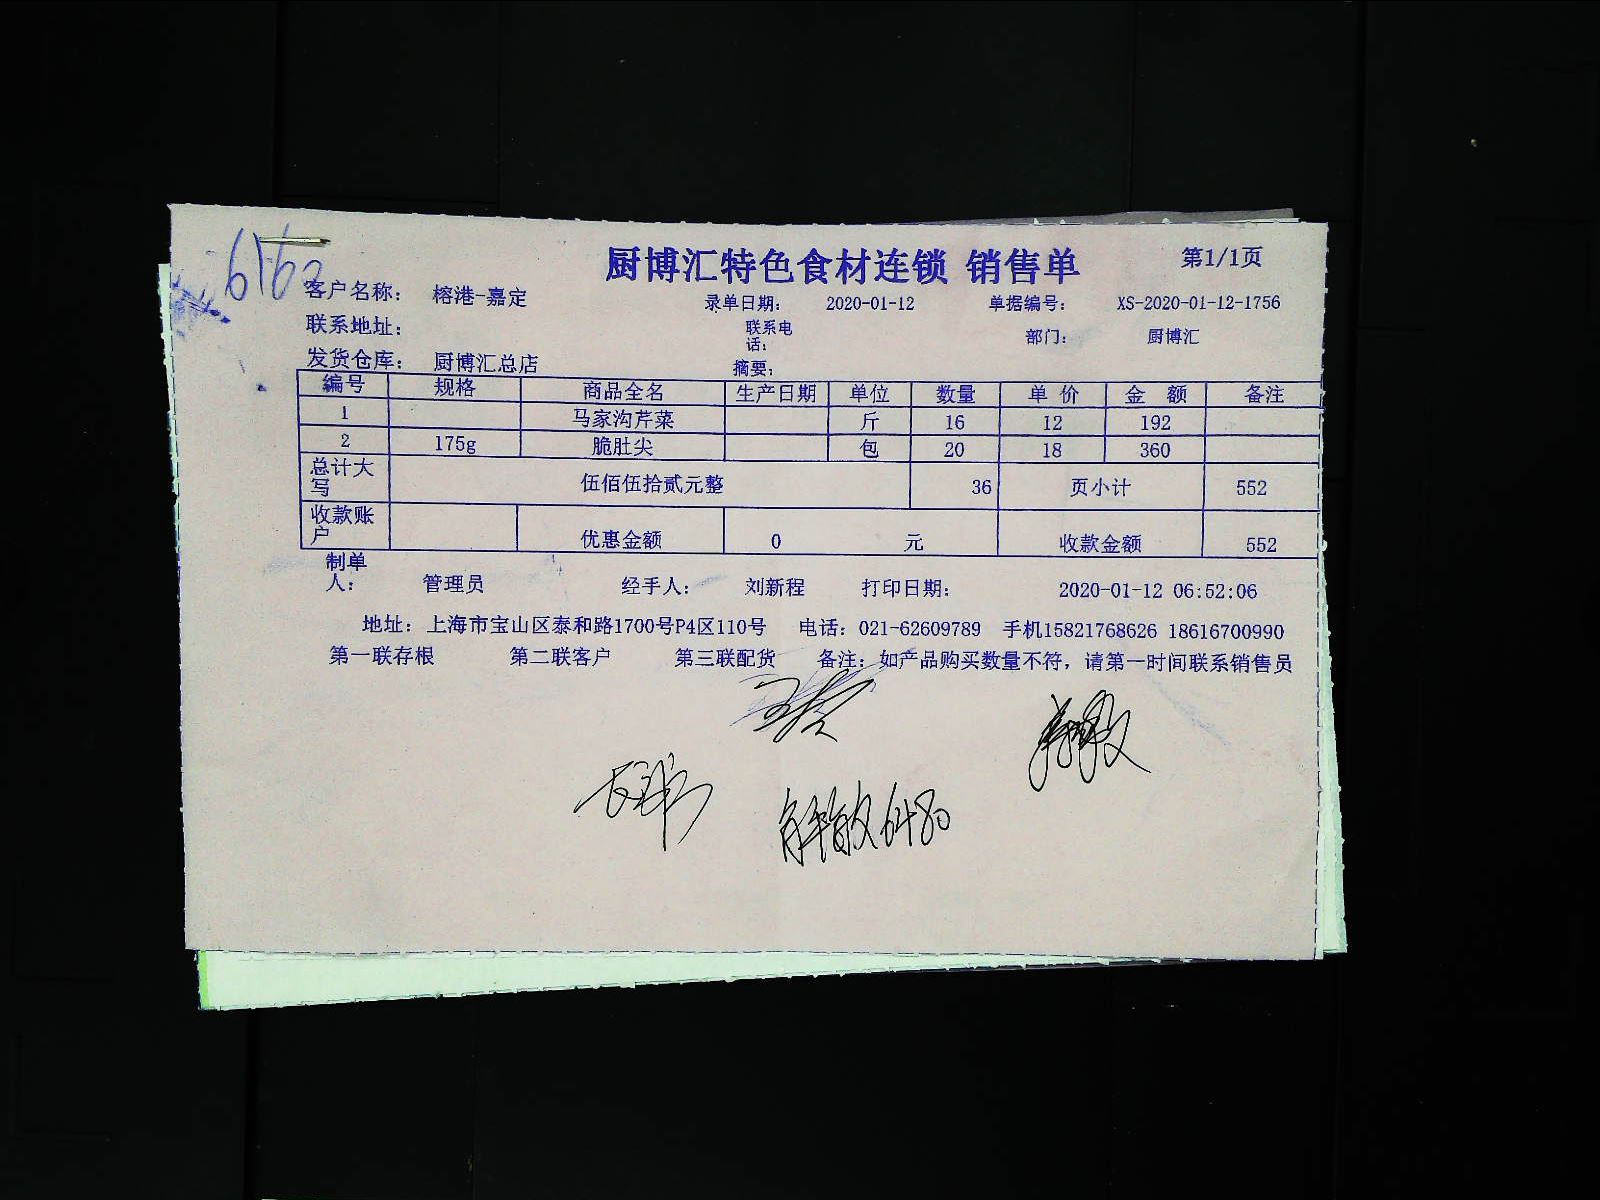 厨博汇特色食材连锁 销售单 第1/1页
6162
客户名称： 榕港-嘉定 录单日期： 2020-01-12 单据编号： XS-2020-01-12-1756
联系地址： 联系电话： 部门： 厨博汇
发货仓库： 厨博汇总店 摘要：
编号 规格 商品全名 生产日期 单位 数量 单 价 金 额 备注
1 马家沟芹菜 斤 16 12 192
2 175g 脆肚尖 包 20 18 360
总计大写 伍佰伍拾贰元整 36 页小计 552
收款账户 优惠金额 0 元 收款金额 552
制单人： 管理员 经手人： 刘新程 打印日期： 2020-01-12 06:52:06
地址：上海市宝山区泰和路1700号P4区110号 电话：021-62609789 手机15821768626 18616700990
第一联存根 第二联客户 第三联配货 备注：如产品购买数量不符，请第一时间联系销售员
6480